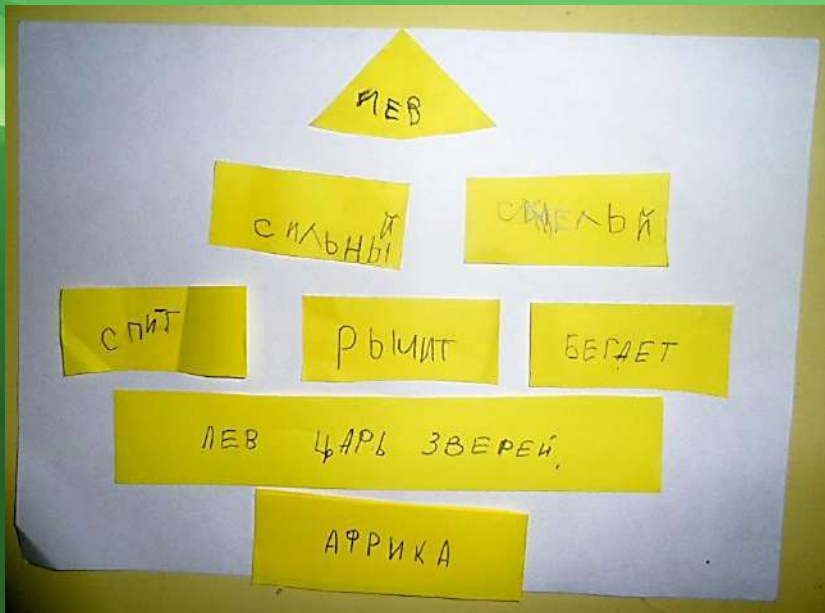 ЛЕВ
СИЛЬНЫЙ
СПИТ
РЫЧИТ
БЕГАЕТ
ЛЕВ ЦАРЬ ЗВЕРЕЙ.
АФРИКА